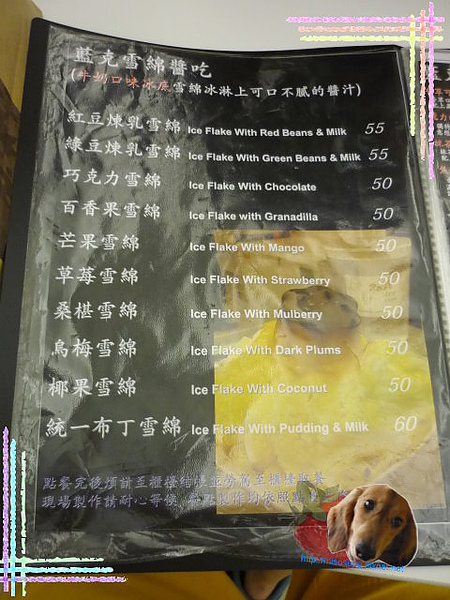 藍克雪綿醬吃
(牛奶口味冰底雪綿冰淋上可口不膩的醬汁)
紅豆煉乳雪綿 Ice Flake With Red Beans & Milk 55
綠豆煉乳雪綿 Ice Flake With Green Beans & Milk 55
巧克力雪綿 Ice Flake With Chocolate 50
百香果雪綿 Ice Flake with Granadilla 50
芒果雪綿 Ice Flake With Mango 50
草莓雪綿 Ice Flake With Strawberry 50
桑椹雪綿 Ice Flake With Mulberry 50
烏梅雪綿 Ice Flake With Dark Plums 50
椰果雪綿 Ice Flake With Coconut 50
統一布丁雪綿 Ice Flake With Pudding & Milk 60
點餐完後煩請至櫃檯結帳並勞駕至櫃檯取餐
現場製作請耐心等候 餐點製作均依照點